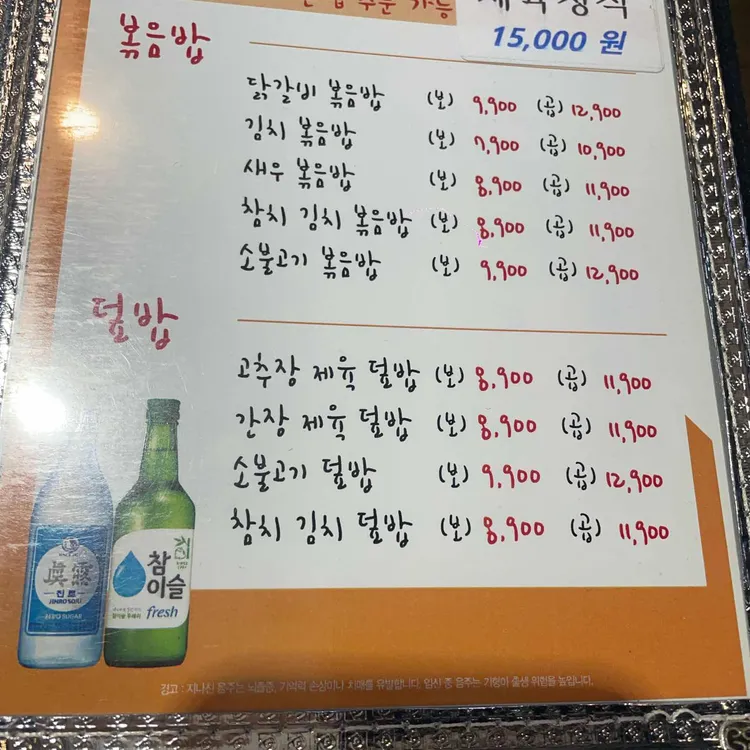 주문 가능
제육정식
15,000 원
볶음밥
닭갈비 볶음밥 (보) 9,900 (곱) 12,900
김치 볶음밥 (보) 7,900 (곱) 10,900
새우 볶음밥 (보) 8,900 (곱) 11,900
참치 김치 볶음밥 (보) 8,900 (곱) 11,900
소불고기 볶음밥 (보) 9,900 (곱) 12,900
덮밥
고추장 제육 덮밥 (보) 8,900 (곱) 11,900
간장 제육 덮밥 (보) 8,900 (곱) 11,900
소불고기 덮밥 (보) 9,900 (곱) 12,900
참치 김치 덮밥 (보) 8,900 (곱) 11,900
眞露
진로
JINRO SOJU
ZERO SUGAR
참
이슬
fresh
경고 : 지나친 음주는 뇌졸중, 기억력 손상이나 치매를 유발합니다. 임신 중 음주는 기형아 출생 위험을 높입니다.